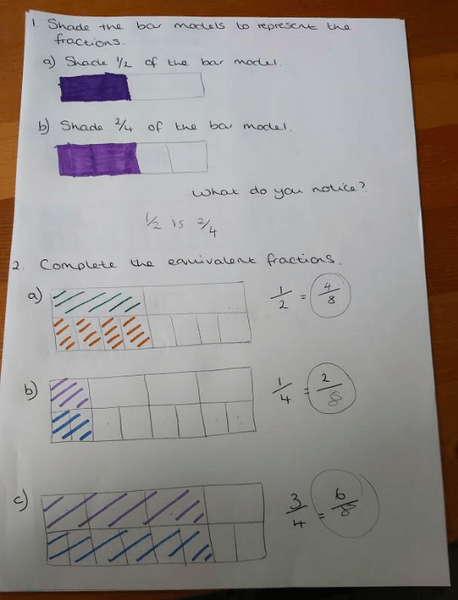 1. Shade the bar models to represent the
fractions.
a) Shade 1/2 of the bar model.
b) Shade 2/4 of the bar model.
What do you notice?
1/2 is 2/4
2. Complete the equivalent fractions.
a) 1/2 = 4/8
b) 1/4 = 2/8
c) 3/4 = 6/8